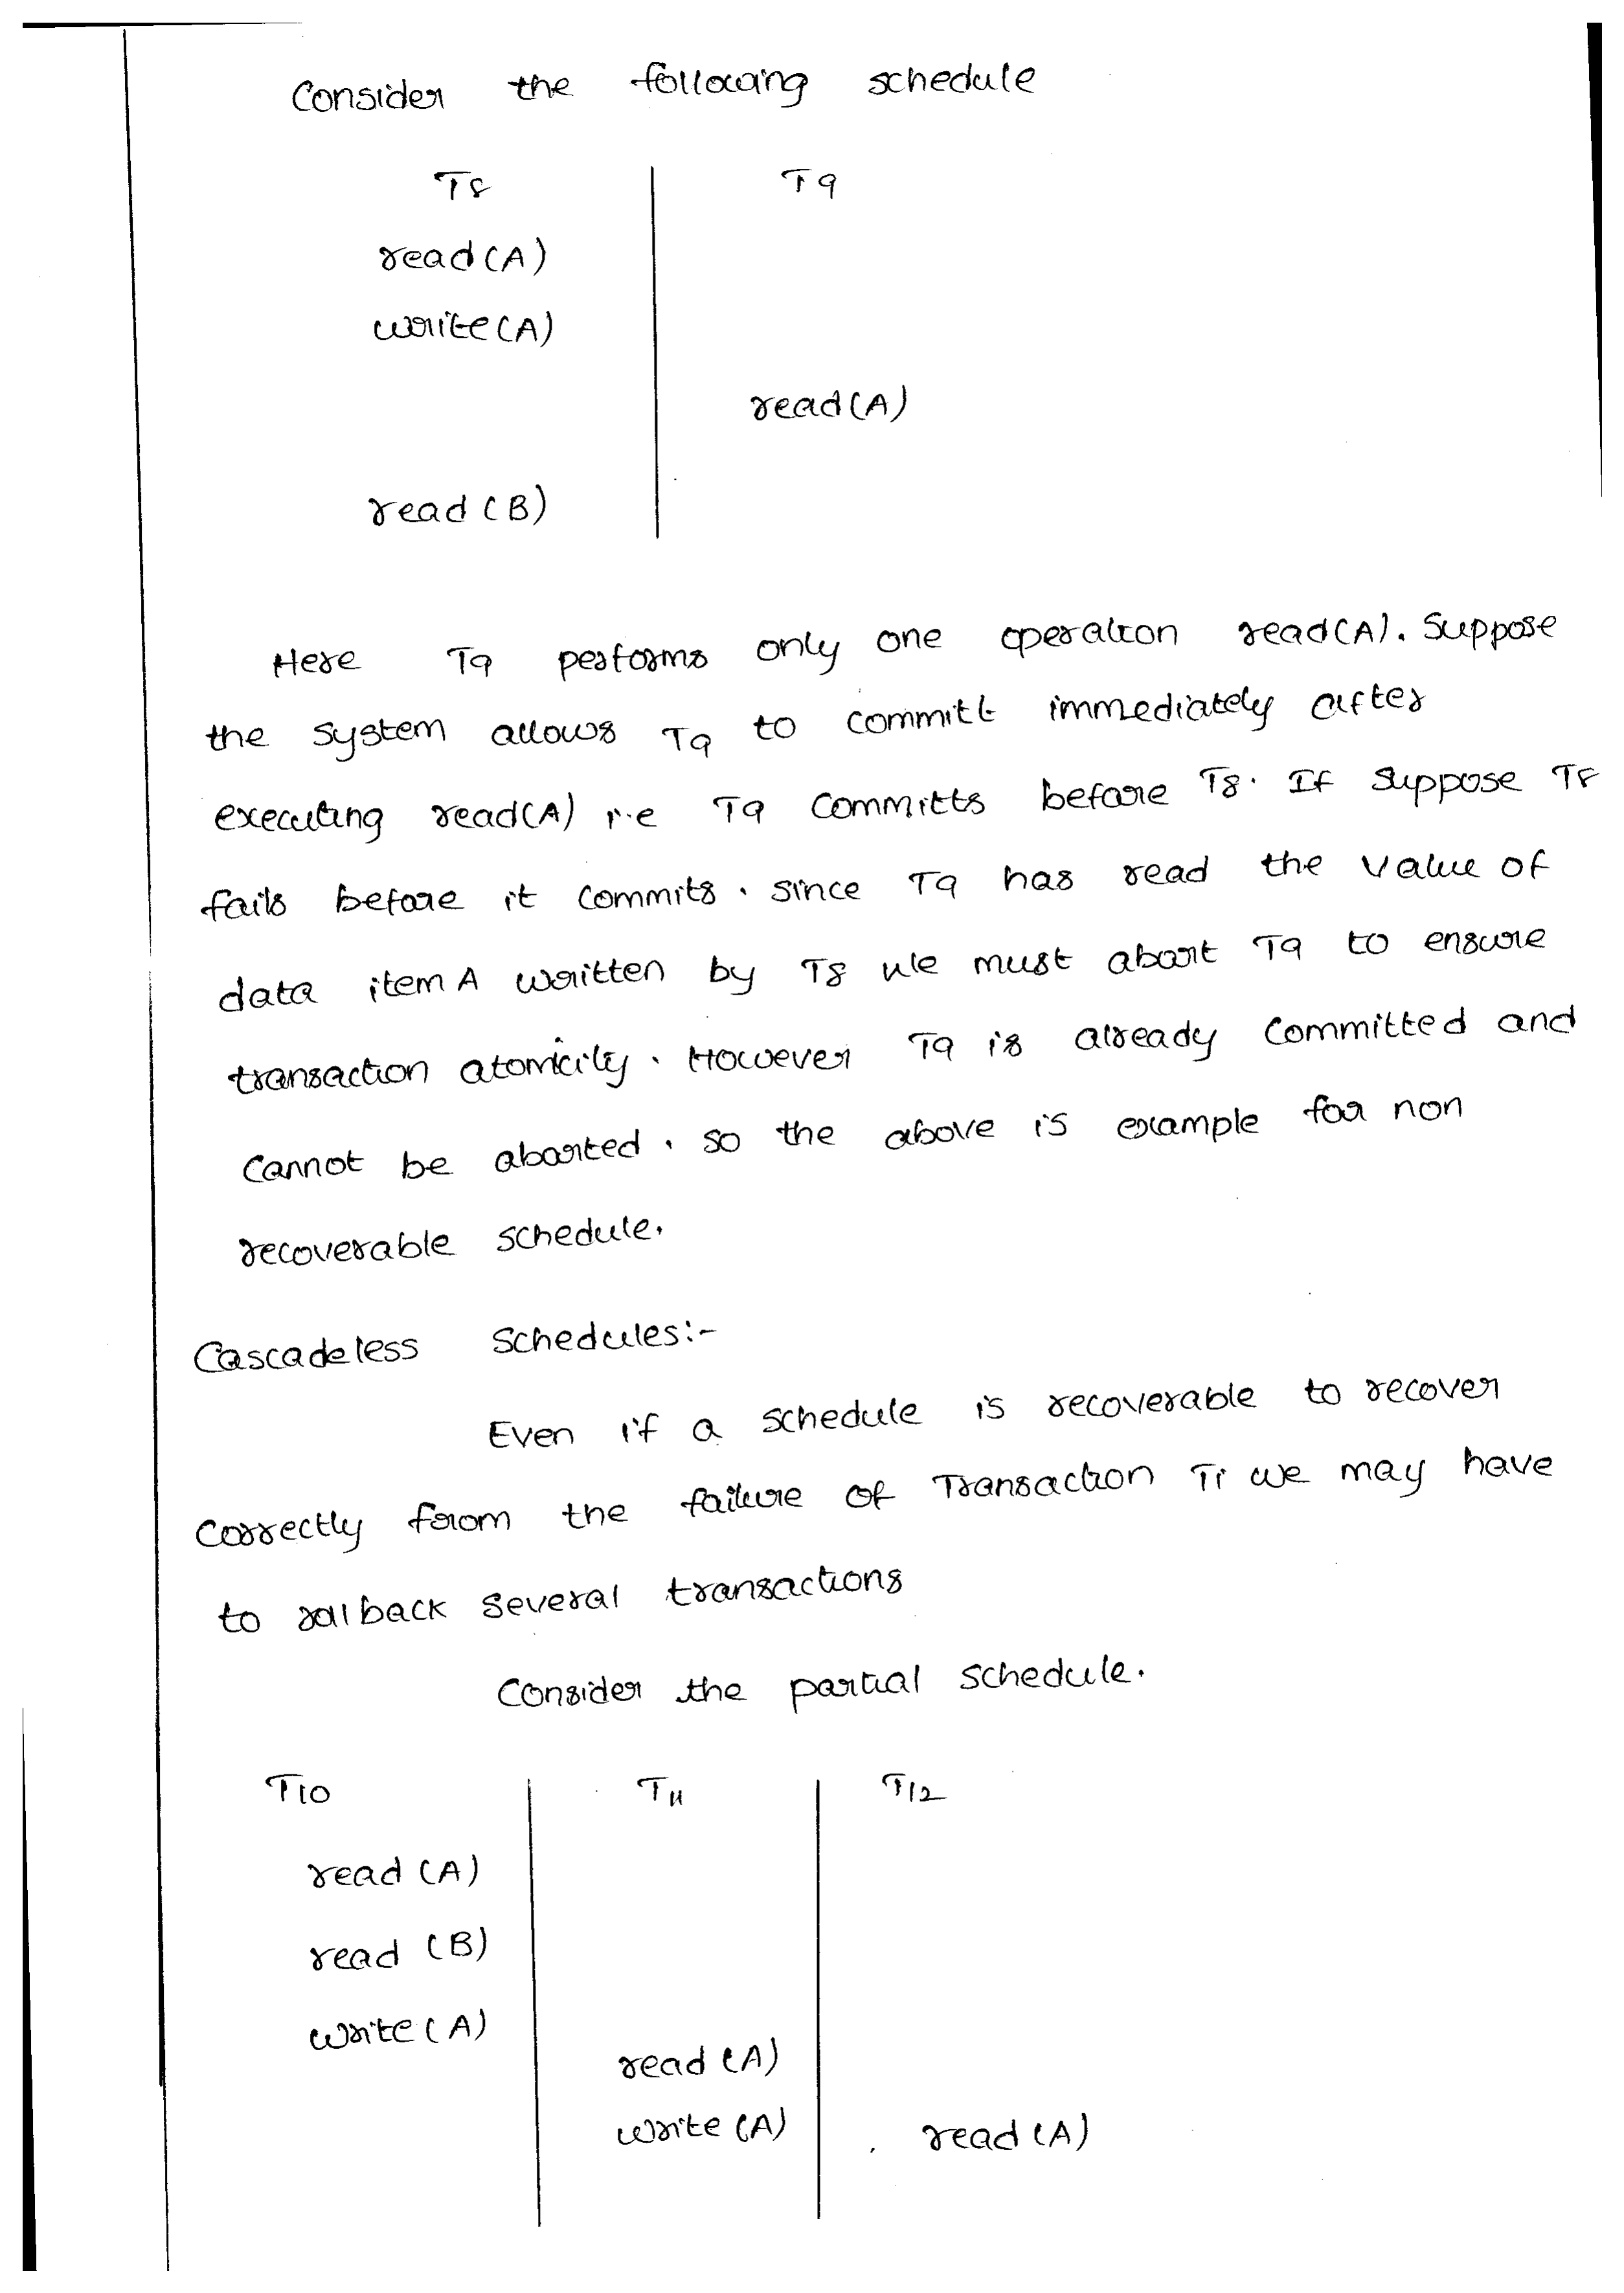 Consider the following schedule
T8 T9
read(A)
write(A)
read(A)
read(B)
Here T9 performs only one operation read(A). Suppose
the system allows T9 to committ immediately after
executing read(A) i.e T9 committs before T8. If suppose T8
fails before it commits. since T9 has read the value of
data item A written by T8 we must abort T9 to ensure
transaction atomicity. However T9 is already committed and
cannot be aborted. so the above is example for non
recoverable schedule.
Cascadeless Schedules:-
Even if a schedule is recoverable to recover
correctly from the failure of Transaction Ti we may have
to rollback several transactions
Consider the partial schedule.
T10 T11 T12
read (A)
read (B)
write (A)
read (A)
write (A) read (A)